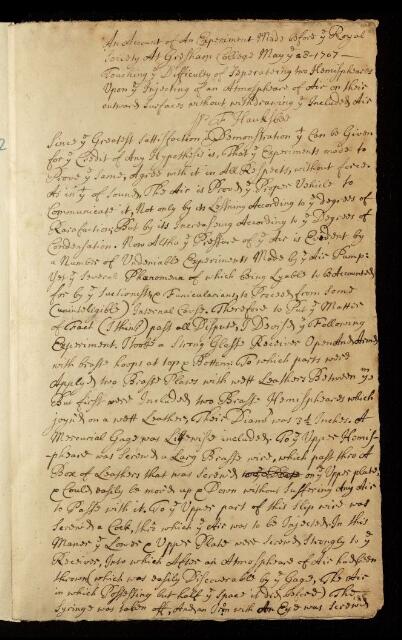 An Account of An Experiment Made before yͤ Royal
Society At Gresham College May yͤ 28 - 1707 —
Touching yͤ Difficulty of Seperateing two Hemisphæres
Upon yͤ Injecting of an Atmosphære of Air on their
outward Surfaces without withdrawing yͤ Included Air
Fr Hauksbee
Since yͤ Greatest Sattisfaction & Demonstration yͭ Can be Given
for yͤ Credit of Any Hypothesis is, That yͤ Experiments made to
Prove yͤ Same, Agree with it in All Respects, without force.
As in yͭ of Sound, The Air is Proved yͤ Proper Vehicle to
Communicate it, Not only by its Lessning According to yͤ Degrees of
Rarefaction; But by its Increasing According to yͤ Degrees of
Condensation. Now Altho yͤ Pressure of yͤ Air is Evident by
a Number of Undeniable Experiments Made by yͤ Air Pump:
Yet yͤ Several Phænomena of which being Lyable to be Accounted
for by yͤ Suctionists & Funicularians, to Proceed from some
(unintelligible) Internal Cause. Therefore to Put yͤ Matter
of fact (I think) past all Dispute, I Devised yͤ Following
Experiment. I took a Strong Glasse Receiver Open And Armed
with brasse hoops at top & Bottom: To which parts were
Applyed two Brasse Plates with wett Leathers Between
But first were Included two Brasse Hemisphæres which
joyned on a wett Leather, Their Diamͬ was 3½ Inches. A
Mercurial Gage was Likewise included, To yͤ Upper Hemis-
phære was Screwed a Larg Brasse wire, which past thro A
Box of Leathers that was Screwed on yͤ Upper plate,
& Could Easily be moved up & Down without Suffering Any Air
to Passe with it. To yͤ Upper part of this slip wire was
Screwed a Cock, thro which yͤ Air was to be Injected. In this
Manner yͤ Lower & Upper Plate were Screwed Strongly to yͤ
Receiver, Into which After an Atmosphære of Air had been
thrown (which was easily Discoverable by yͤ Gage, The Air
in which Possessing but half yͤ Space it did before) The
Syringe was taken off, And an Iron with An Eye was Screwed